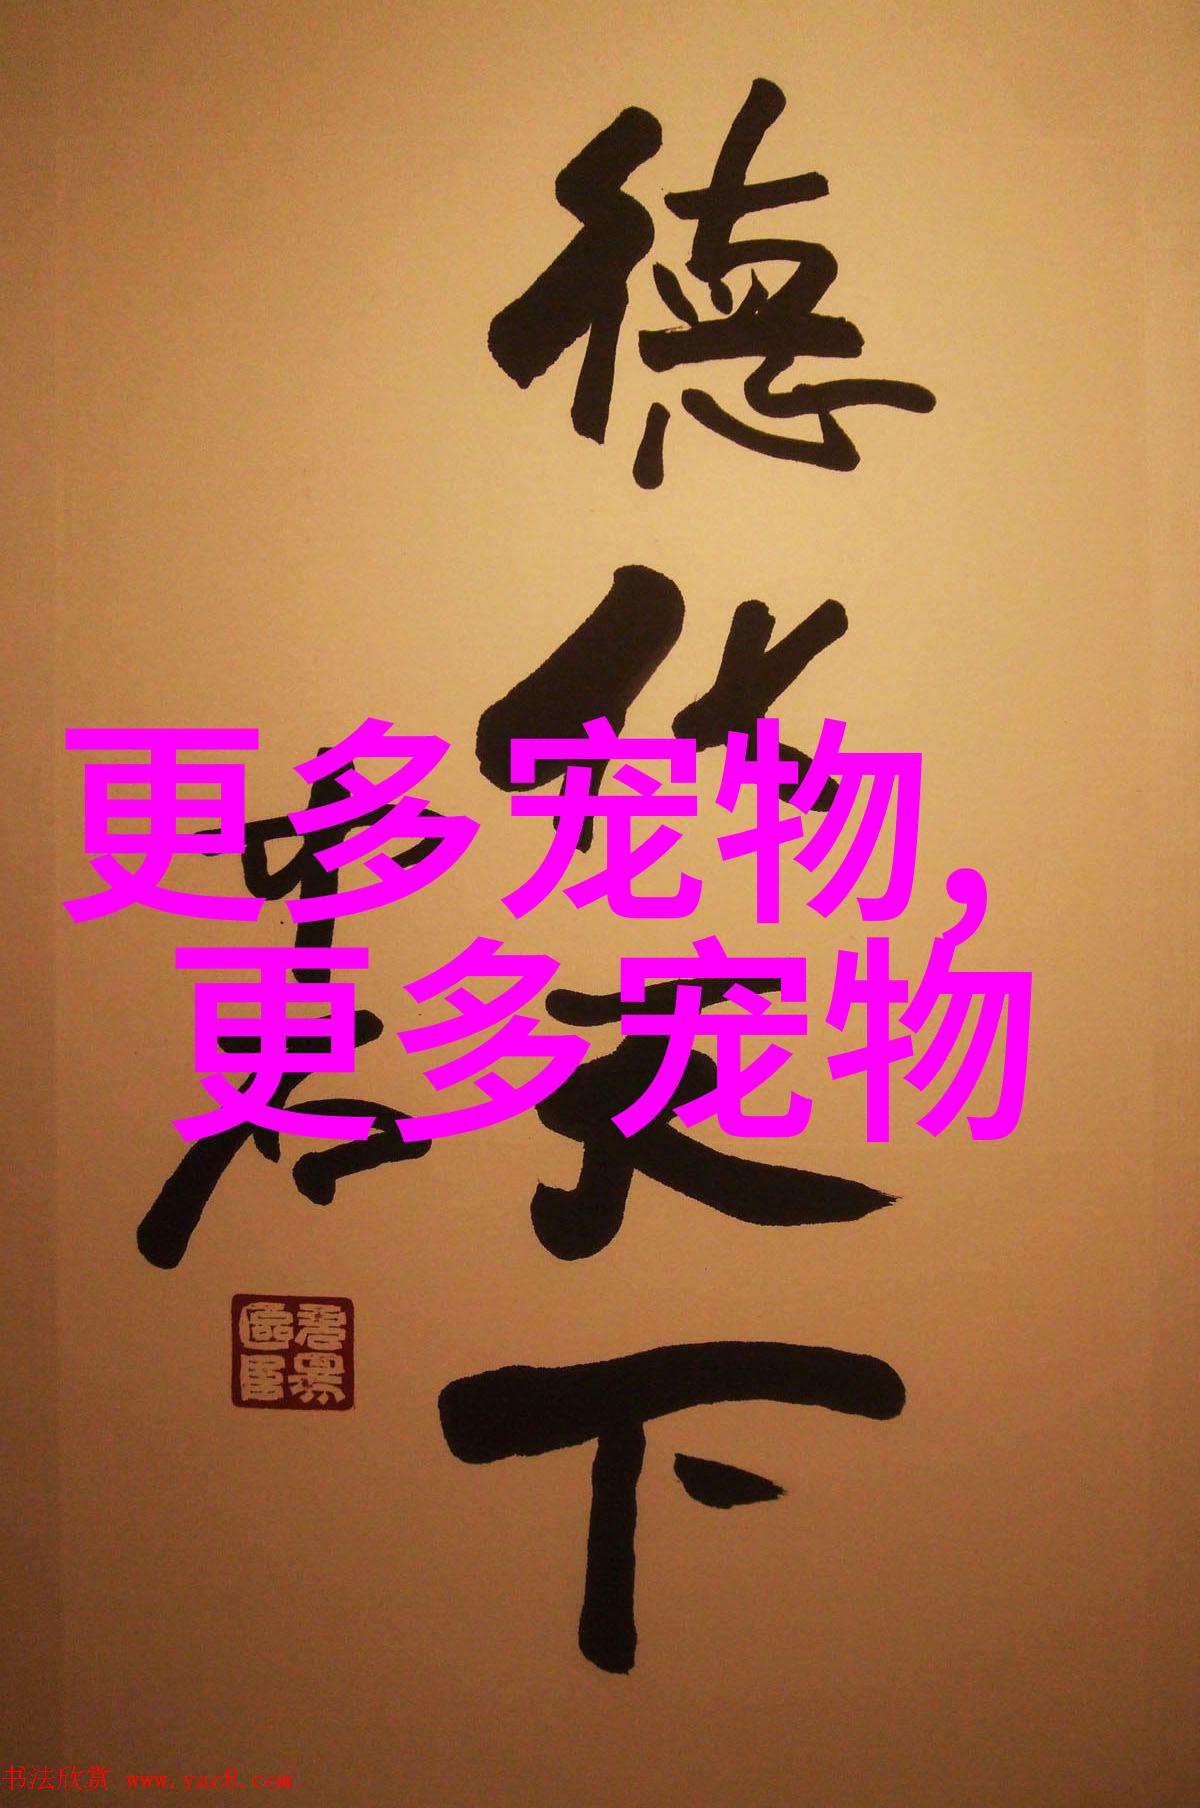 德化天下
更多宠物,
更多宠物
书法欣赏 www.yac8.com